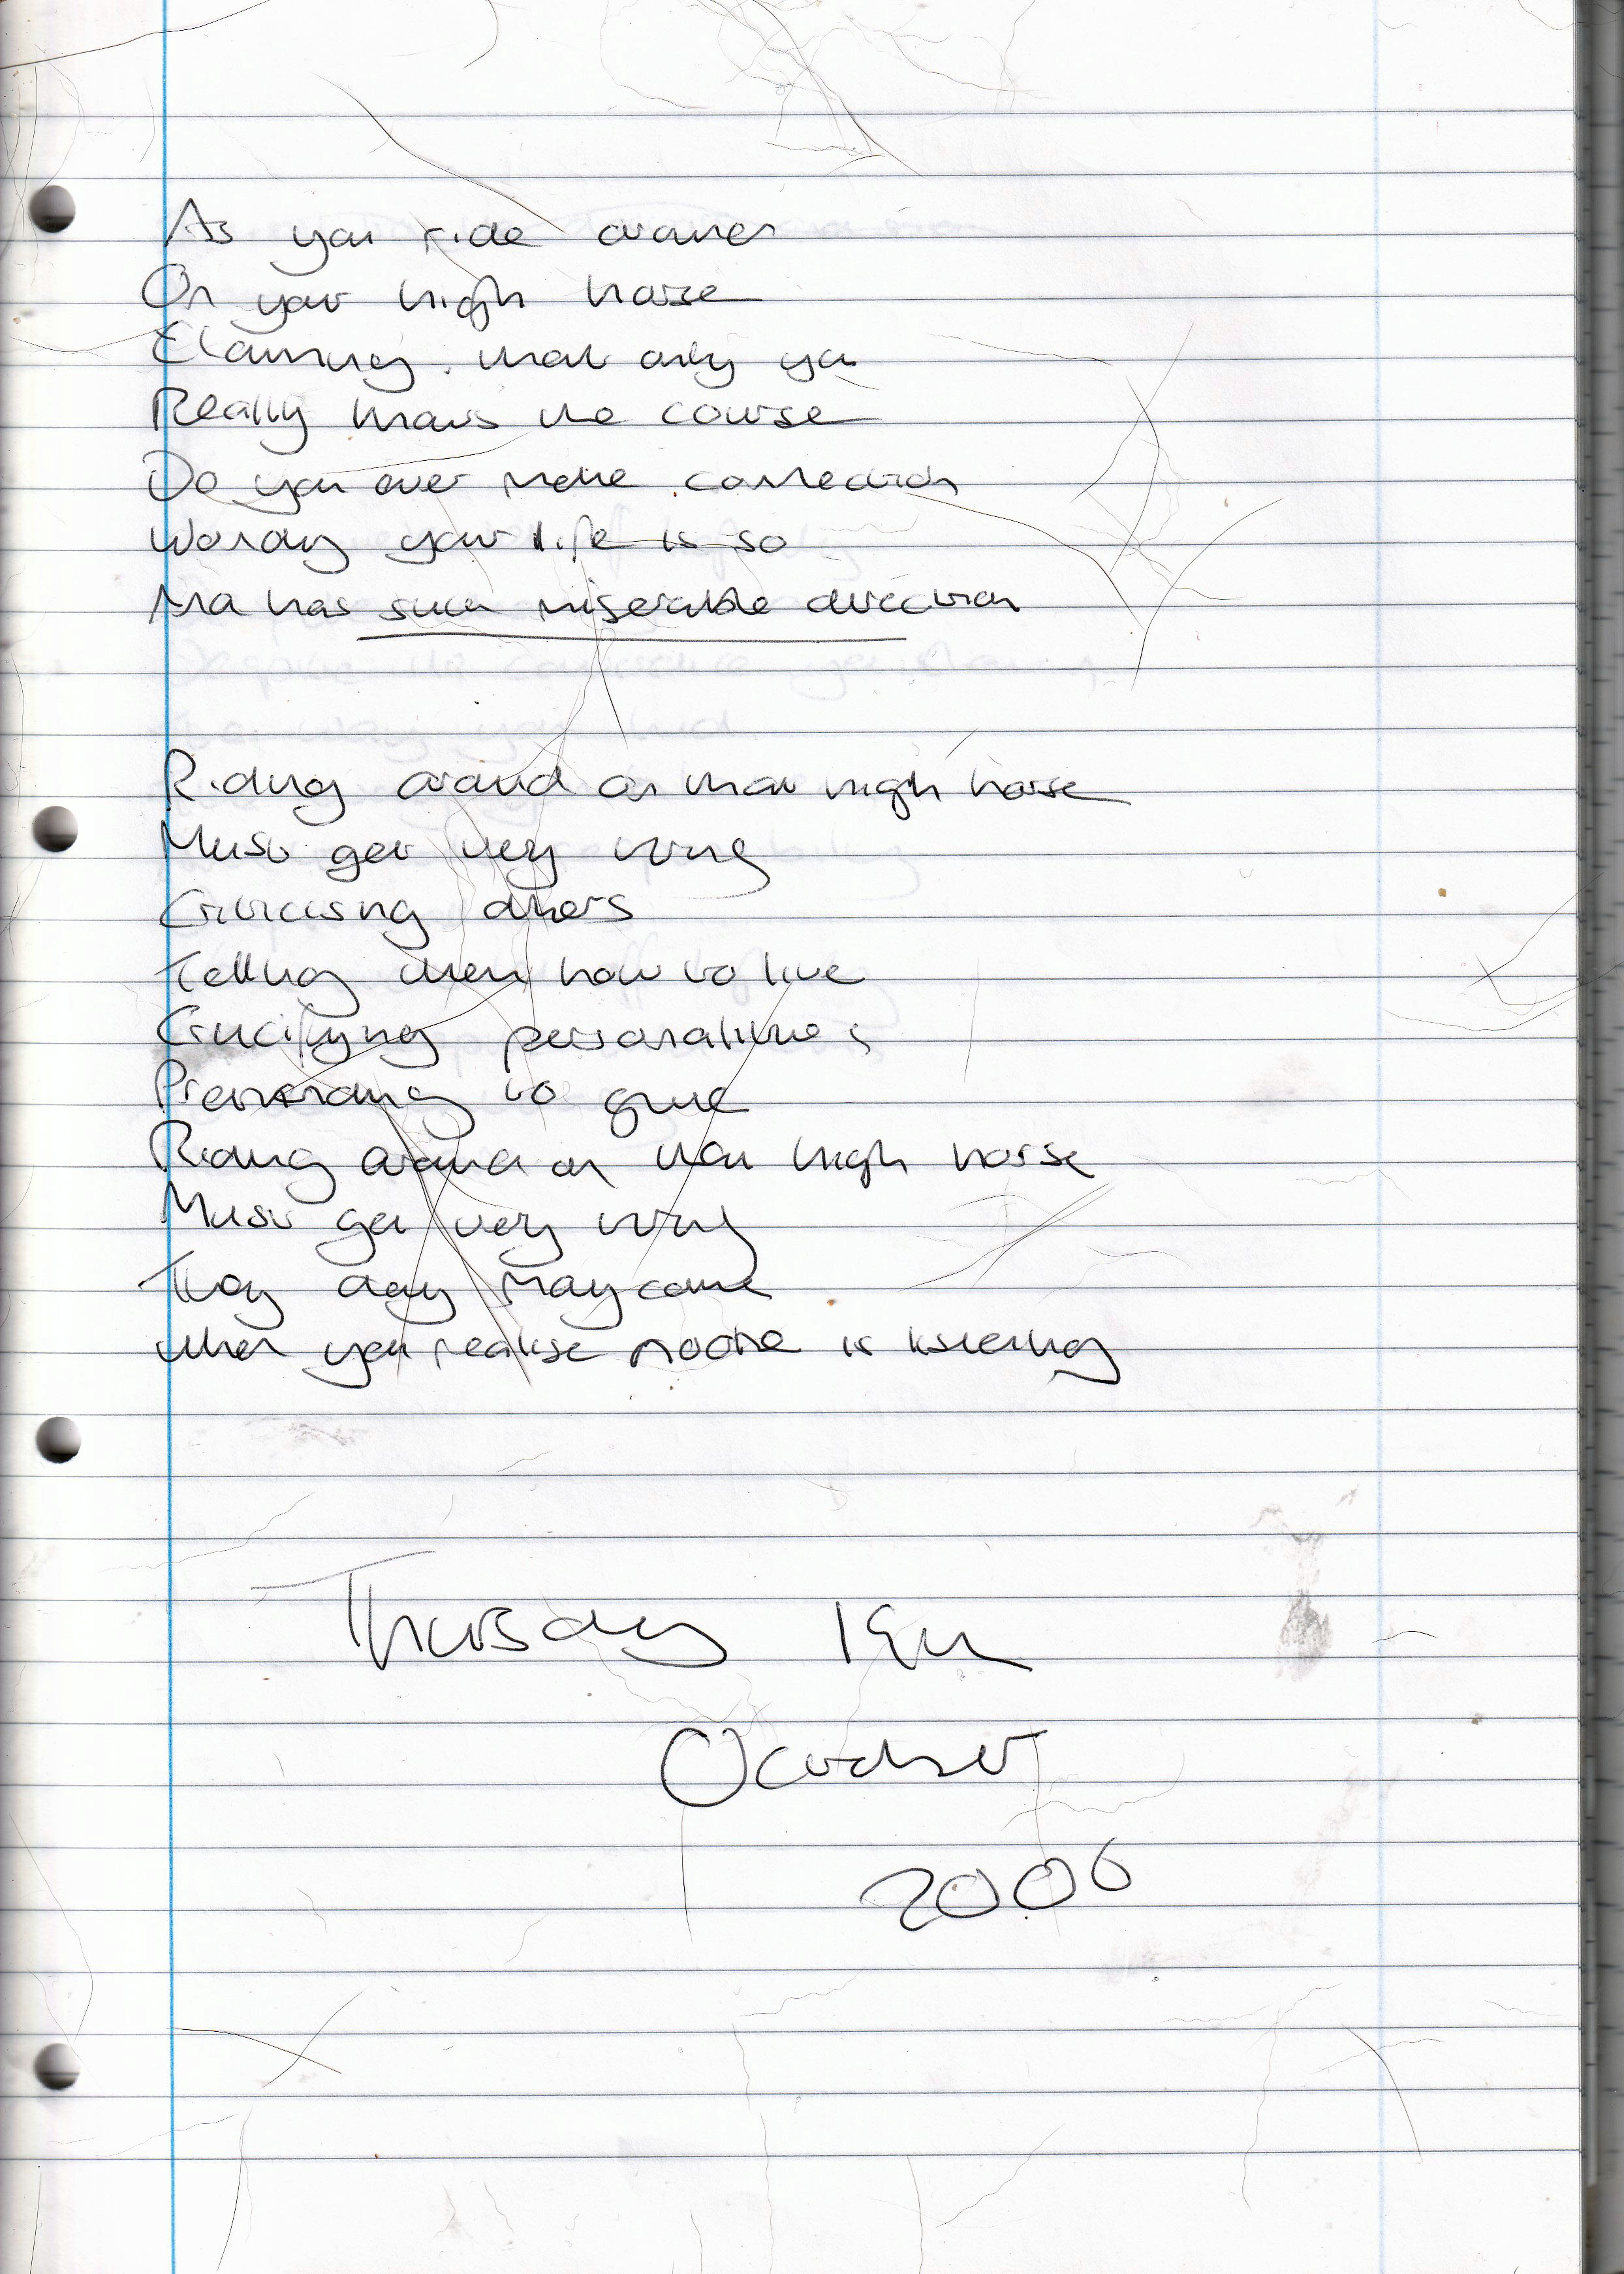 As you ride around
On your high horse
Claiming that only you
Really knows the course
Do you ever make connection
Wording your life is so
And has such miserable direction
Riding around on that high horse
Must get very tiring
Criticising others
Telling them how to live
Crucifying personalities
Pretending to give
Riding around on that high horse
Must get very tiring
They day may come
when you realise noone is listening
Thursday 19th
October
2006